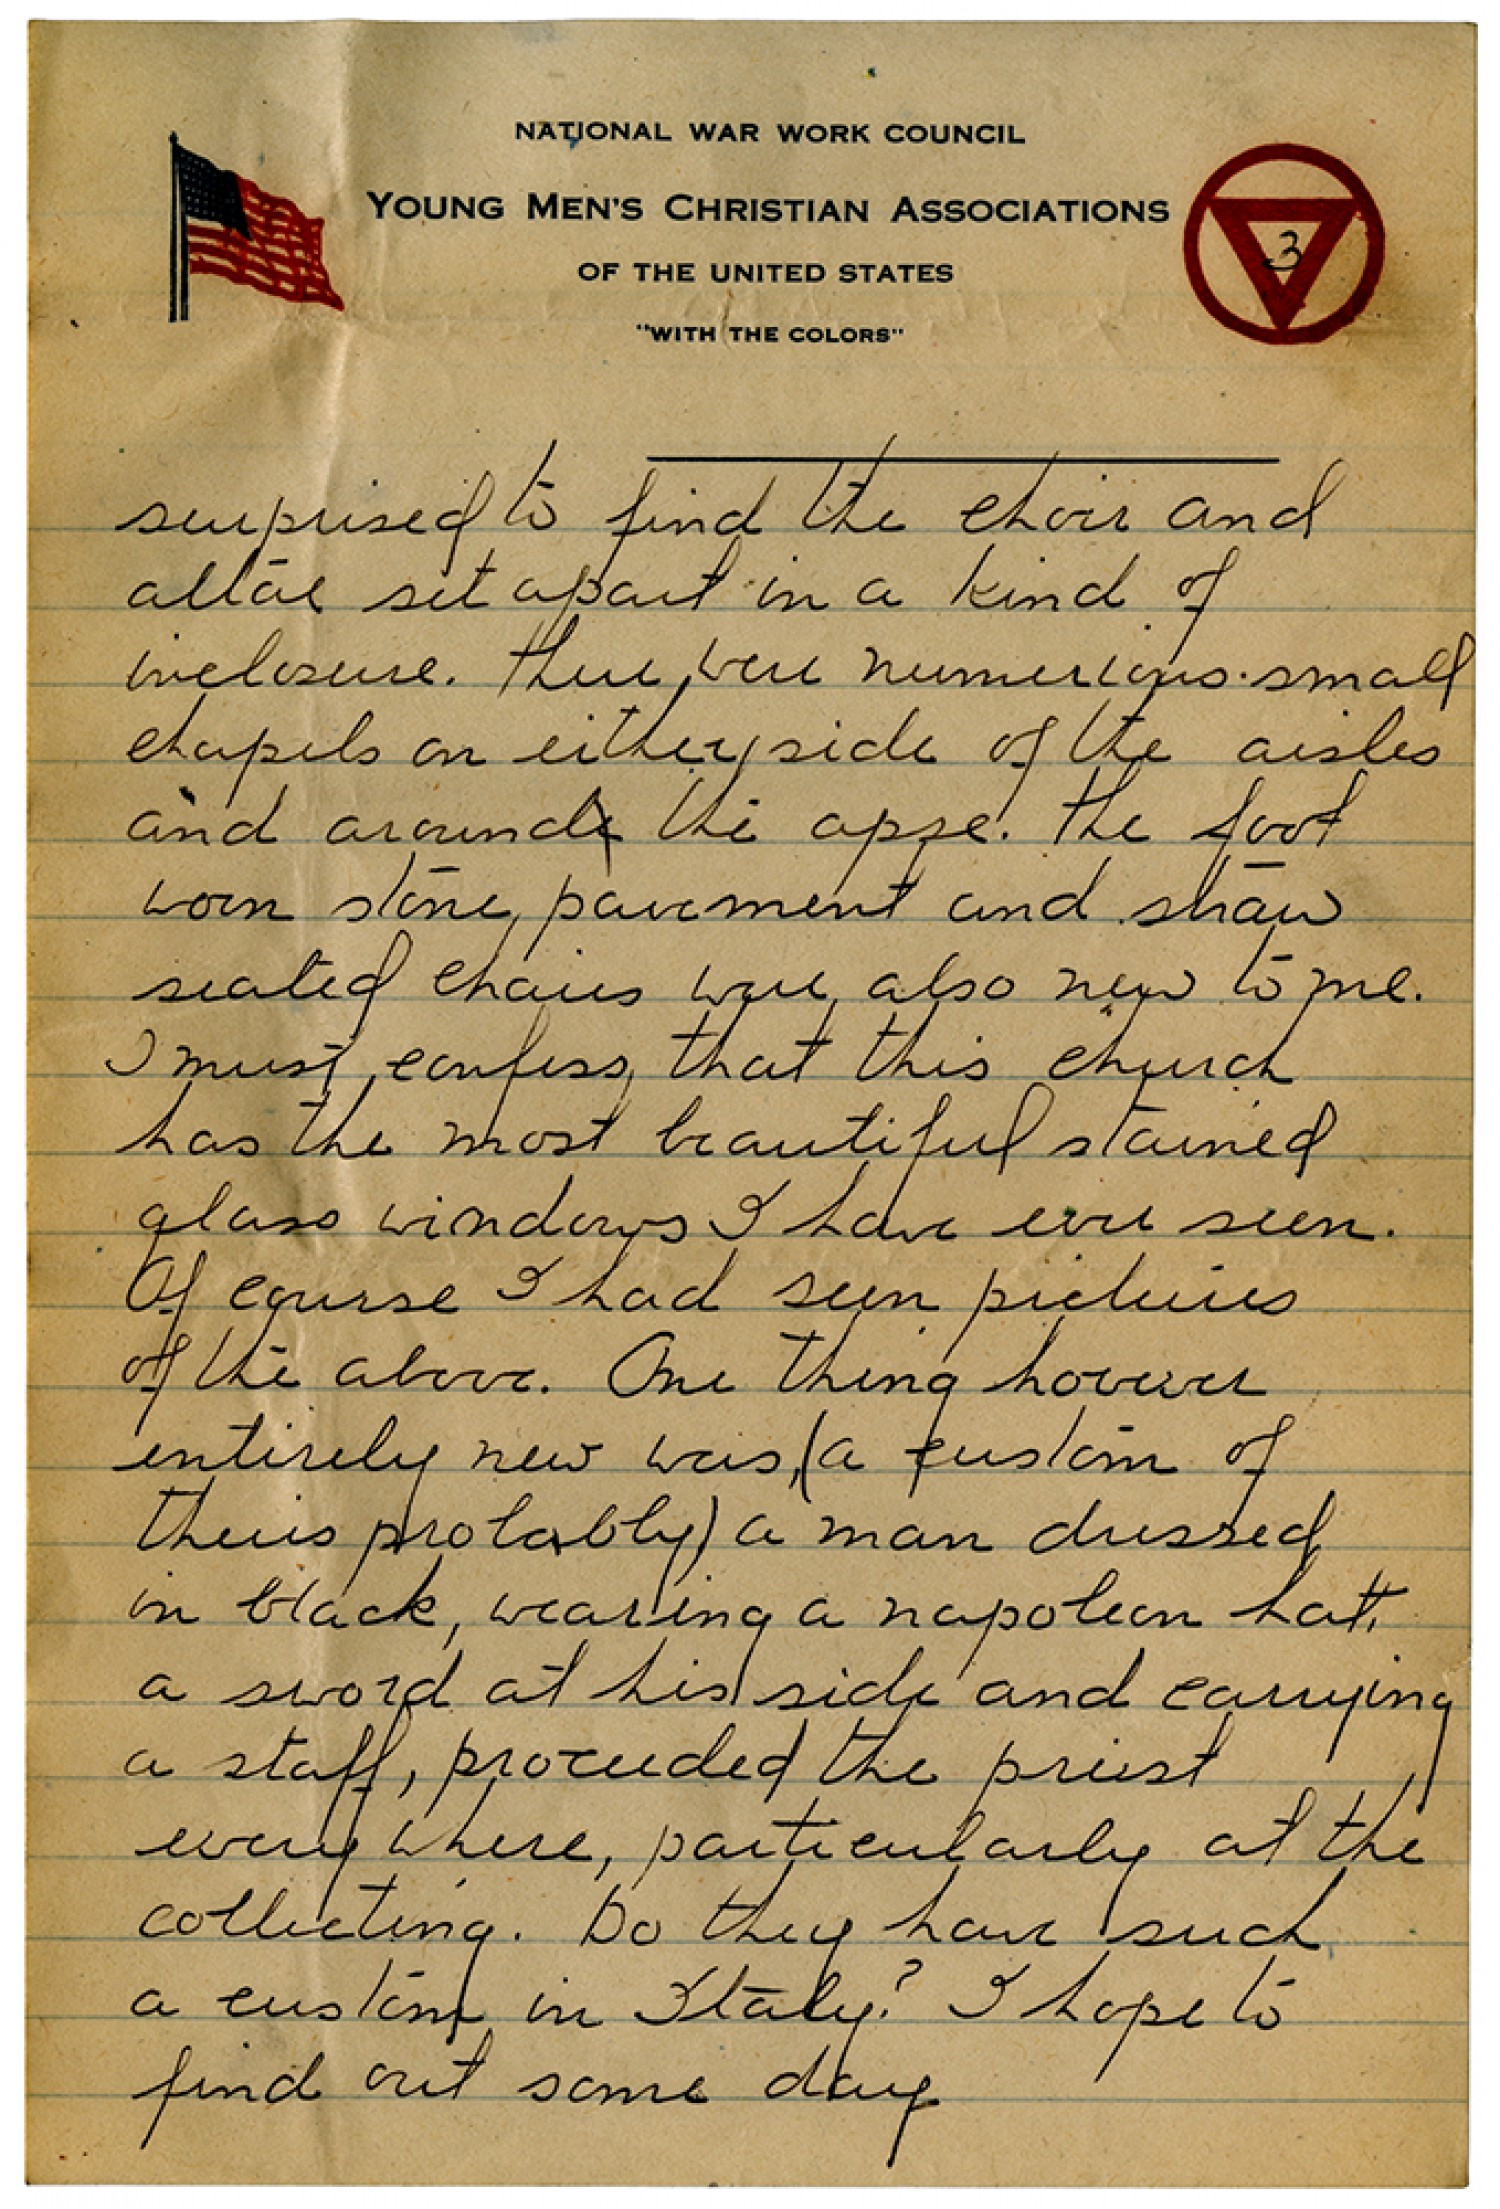 NATIONAL WAR WORK COUNCIL
YOUNG MEN'S CHRISTIAN ASSOCIATIONS
OF THE UNITED STATES
"WITH THE COLORS"
3
surprised to find the choir and
altar set apart in a kind of
inclosure. There were numerious small
chapels on either side of the aisles
and around the apse. The foot
worn stone pavement and straw
seated chairs were also new to me.
I must confess that this church
has the most beautiful stained
glass windows I have ever seen.
Of course I had seen pictures
of the above. One thing however
entirely new was, (a custom of
theirs probably) a man dressed
in black, wearing a napoleon hatt,
a sword at his side and carrying
a staff, proceeded the priest
every where, particularly at the
collecting. Do they have such
a custom in Italy? I hope to
find out some day